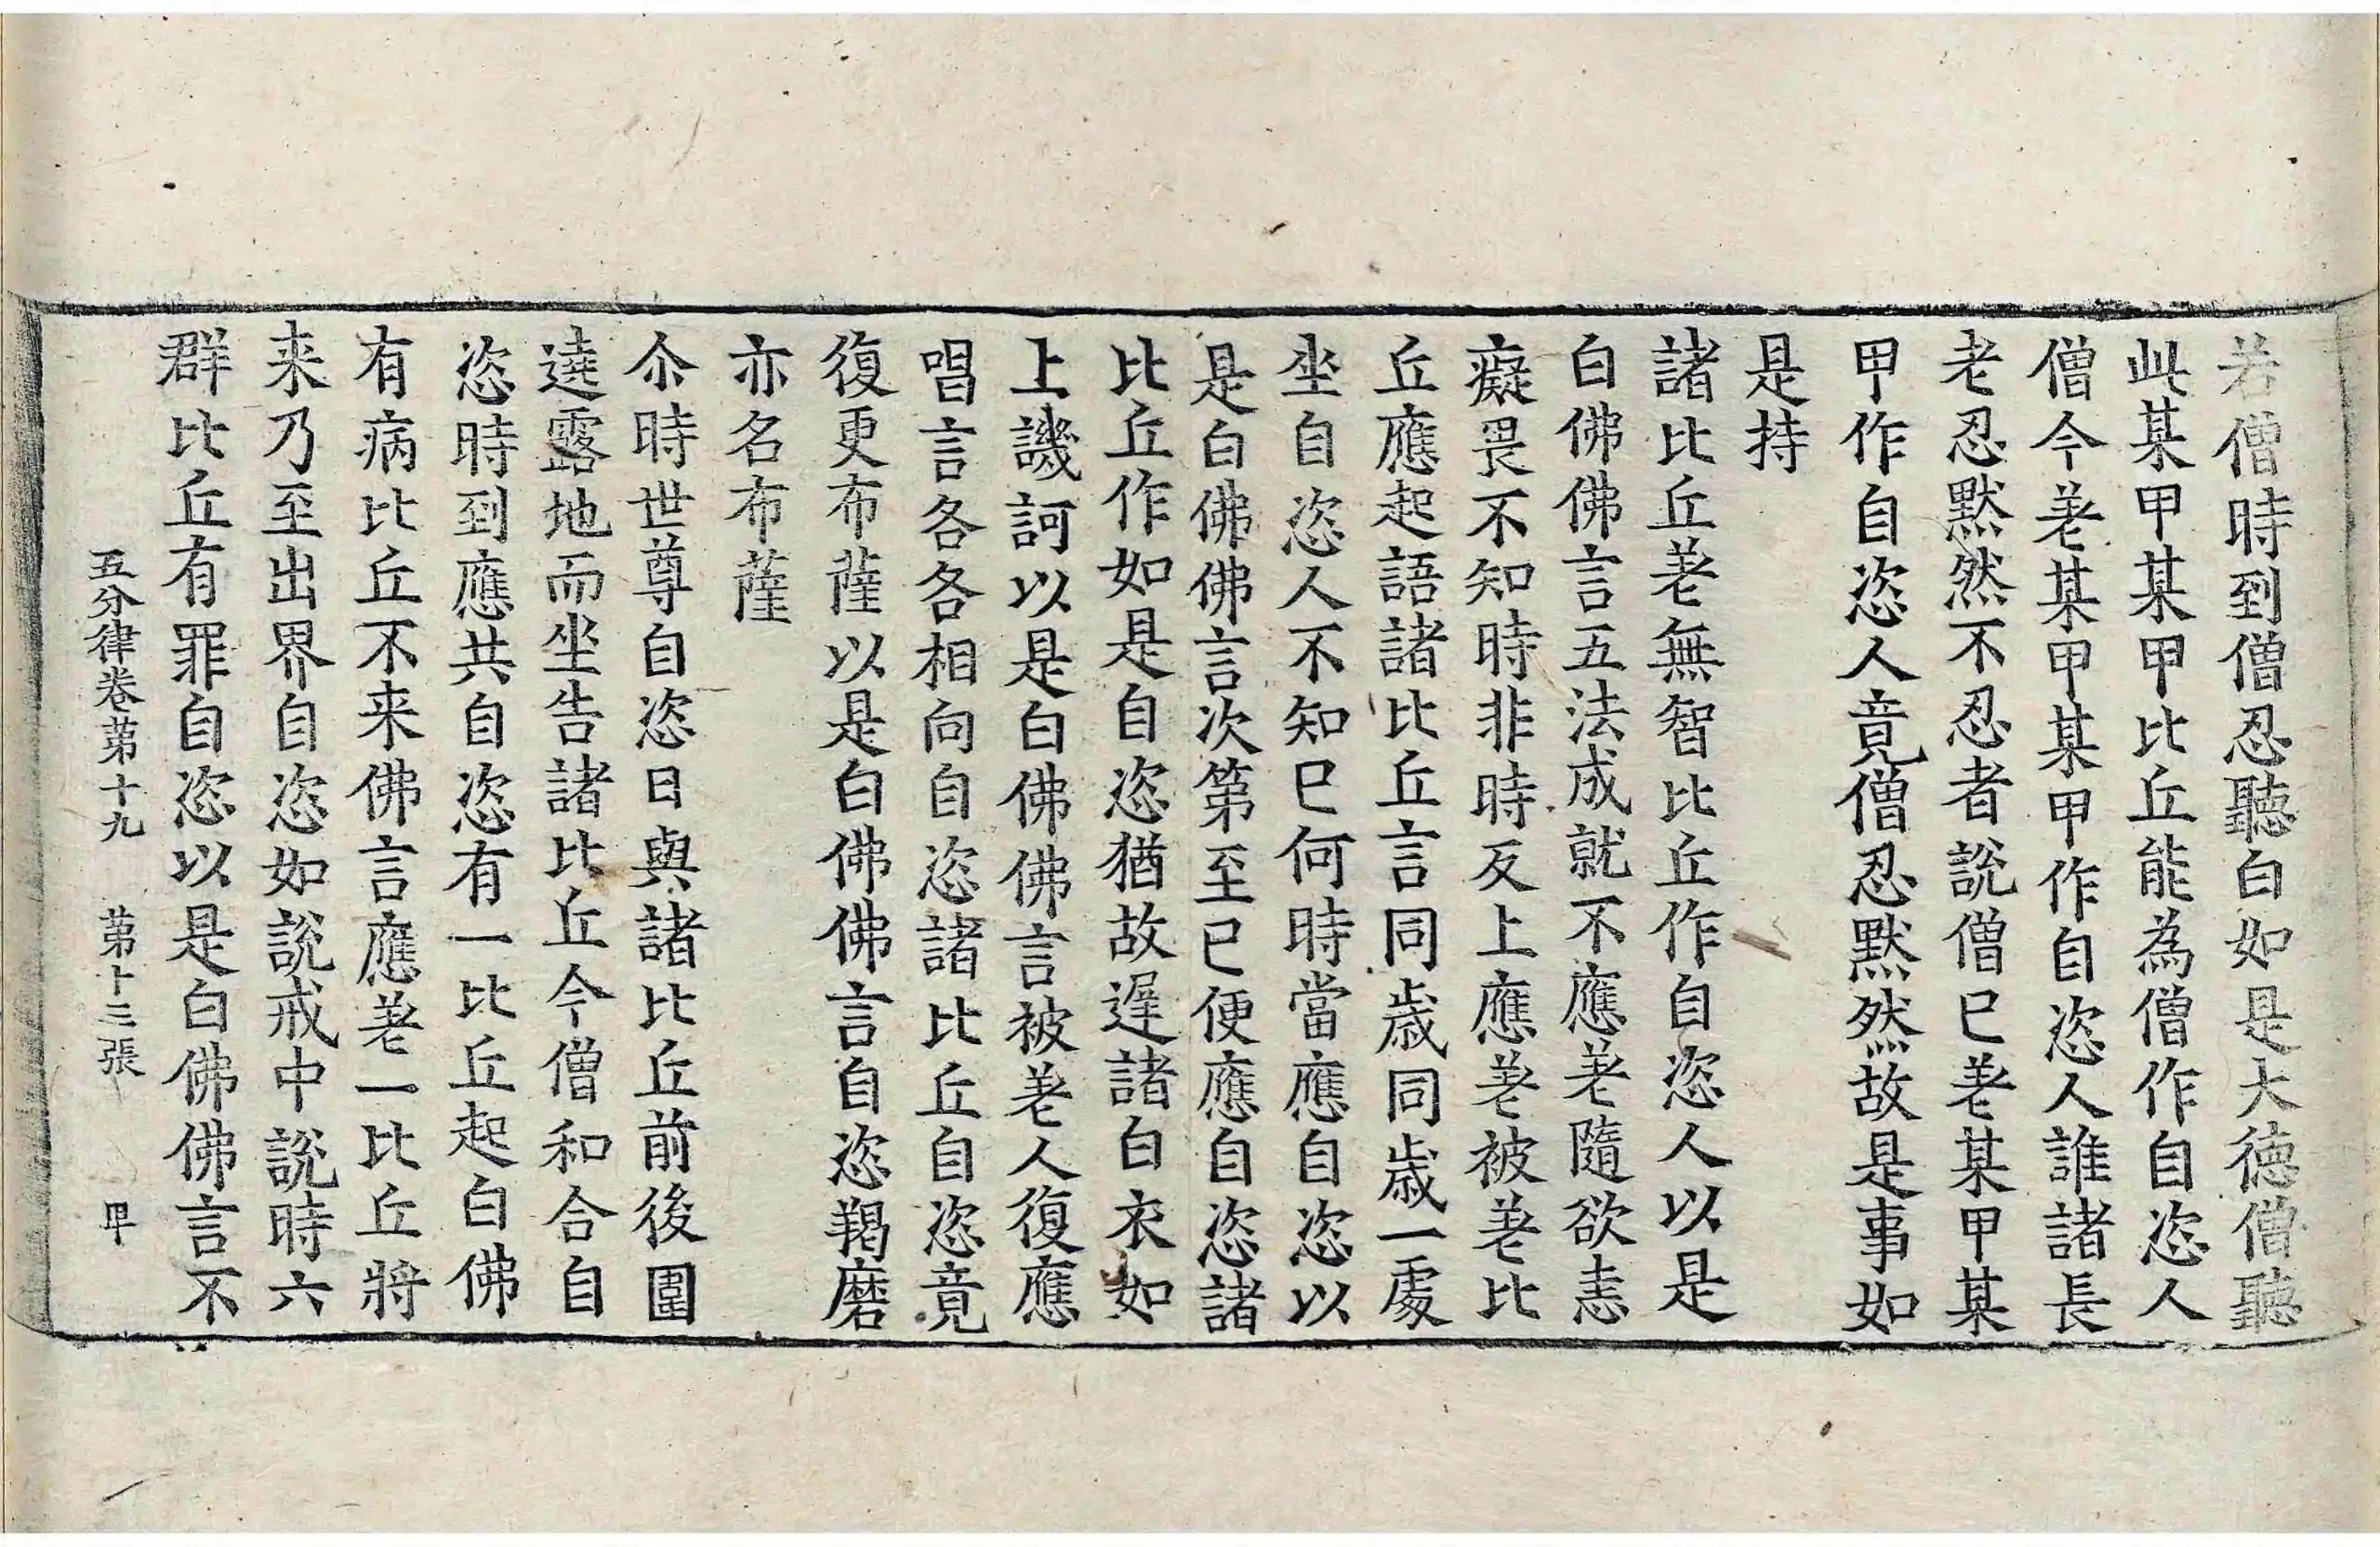 若僧時到僧忍聽白如是大德僧聽
此某甲某甲比丘能為僧作自恣人
僧今差某甲某甲作自恣人誰諸長
老忍默然不忍者說僧已差某甲某
甲作自恣人竟僧忍默然故是事如
是持
諸比丘差無智比丘作自恣人以是
白佛佛言五法成就不應差隨欲恚
癡畏不知時非時反上應差被差比
丘應起語諸比丘言同歲同歲一處
坐自恣人不知已何時當應自恣以
是白佛佛言次第至已便應自恣諸
比丘作如是自恣猶故遲諸白衣如
上譏訶以是白佛佛言被差人復應
唱言各各相向自恣諸比丘自恣竟
復更布薩以是白佛佛言自恣羯磨
亦名布薩
尒時世尊自恣日與諸比丘前後圍
遶露地而坐告諸比丘今僧和合自
恣時到應共自恣有一比丘起白佛
有病比丘不来佛言應差一比丘將
来乃至出界自恣如說戒中說時六
群比丘有罪自恣以是白佛佛言不
五分律卷苐十九 苐十三張 甲